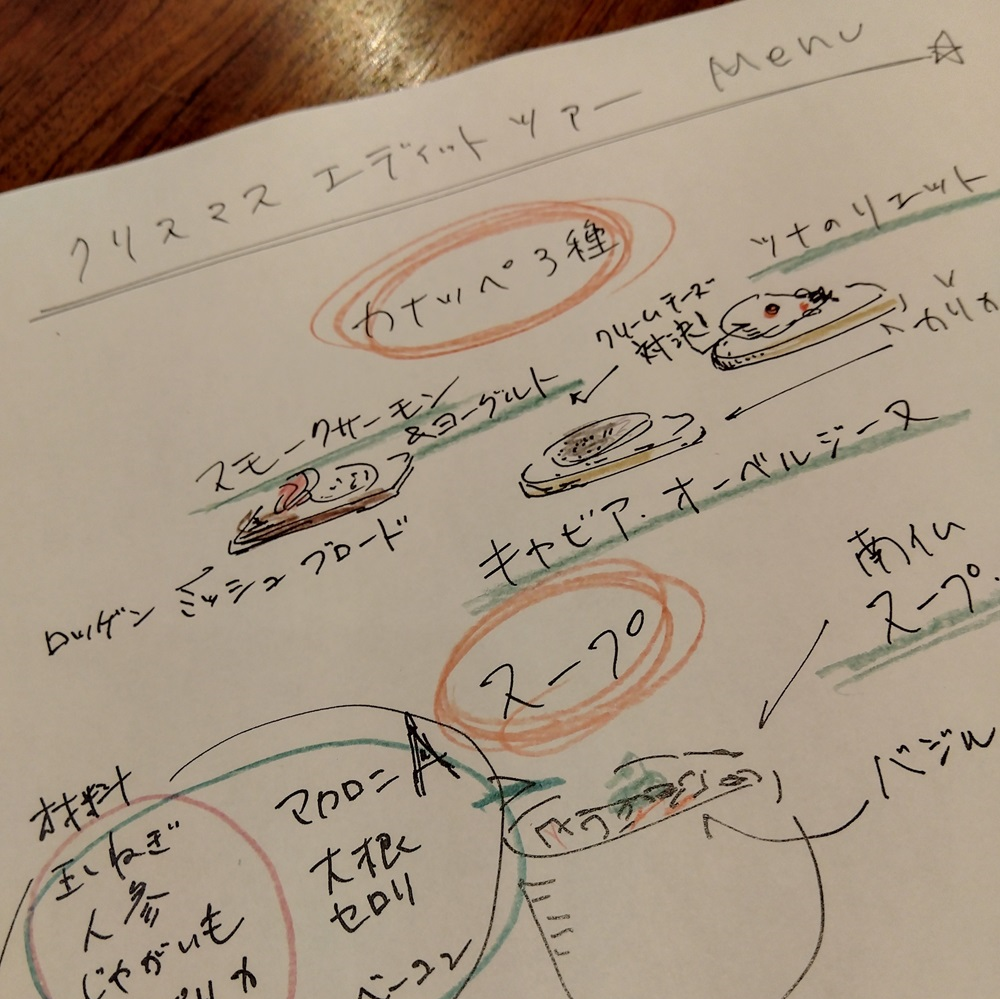 クリスマス エディット ツアー Menu
カナッペ 3種
ツナのリエット
クリームチーズ
対決!
スモークサーモン
&ヨーグルト
キャビア・オーベルジーヌ
ロッゲン ミッシュ ブロード
スープ
南仏
スープ
バジル
材料
玉ねぎ
人参
じゃがいも
マカロニ
大根
セロリ
ベーコン
A